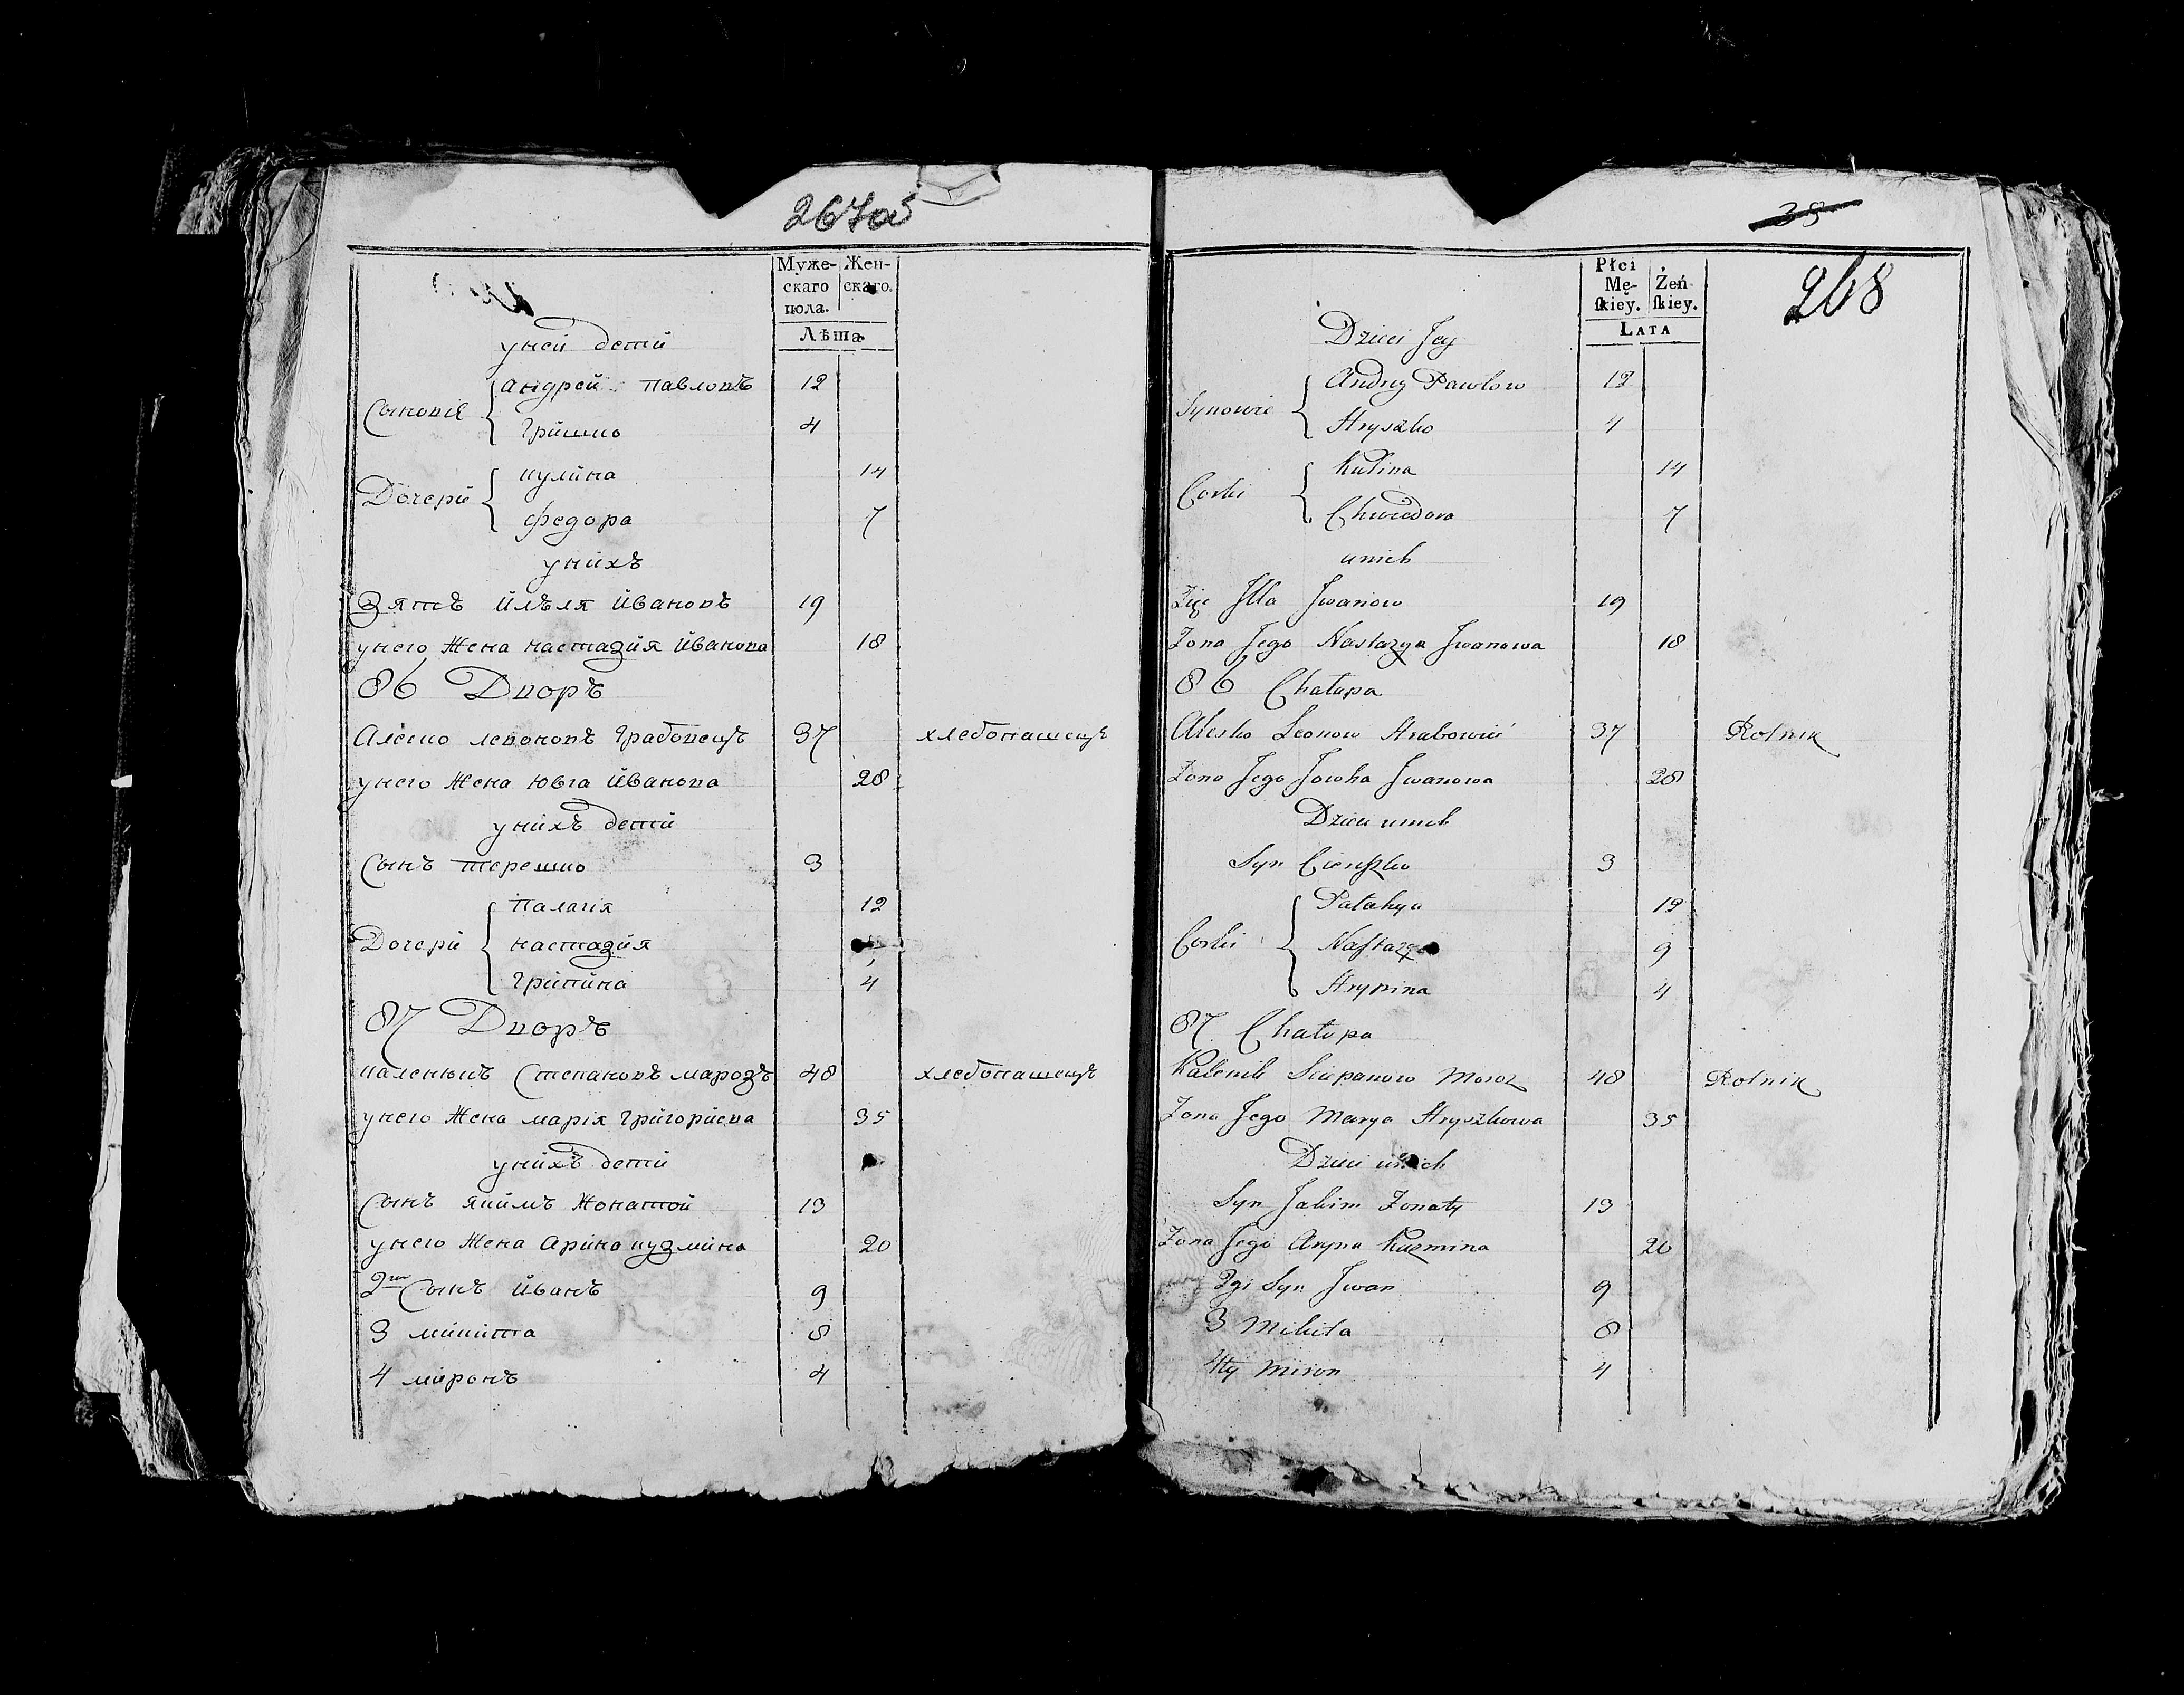 267об
Муже-
скаго
пола.
Жен-
скаго.
Лѣта
уней детй
Сыновiе
андрей павловъ 12
Грйшко 4
Дочерй
кулйна 14
федора 7
унйхъ
Зятъ йлъля йвановъ 19
унего жена настазйя йванова 18
86 Дворъ
Алешко левоновъ Грабовецъ 37 хлебопашецъ
унего жена ювга йванова 28
унйхъ детй
Сынъ терешко 3
Дочерй
палагiя 12
настазйя
Грйпйна 4
87 Дворъ
каленикъ Степановъ марозъ 48 хлебопашецъ
унего жена марiя Грйгорйева 35
унйхъ детй
Сынъ якймъ жонатой 13
унего жена арйна кузмйна 20
2й Сынъ йванъ 9
3 мйкйта 8
4 мйронъ 4
35
268
Płci
Mę-
ſkiey.
Żeń
ſkiey.
LATA
Dzieci Jey
Synowie
Andrzy Pawłow 12
Hryszko 4
Corki
Kulina 14
Chwiedora 7
unich
Zięć Jlla Jwanow 19
Zona Jego Nastazya Jwanowa 18
86 Chałupa
Alesko Leonow Hrabowiec 37 Rolnik
Zona Jego Jowha Jwanowa 28
Dzieci unich
Syn Cieręſzko 3
Corki
Pałahya 12
Naſtazya 9
Hrypina 4
87 Chałupa
Kalenik Sciepanow Moroz 48 Rolnik
Zona Jego Marya Hryszkowa 35
Dzieci unich
Syn Jakim Zonaty 13
Zona Jego Aryna Kuzmina 20
2gi Syn Jwan 9
3 Mikita 8
4ty Miron 4